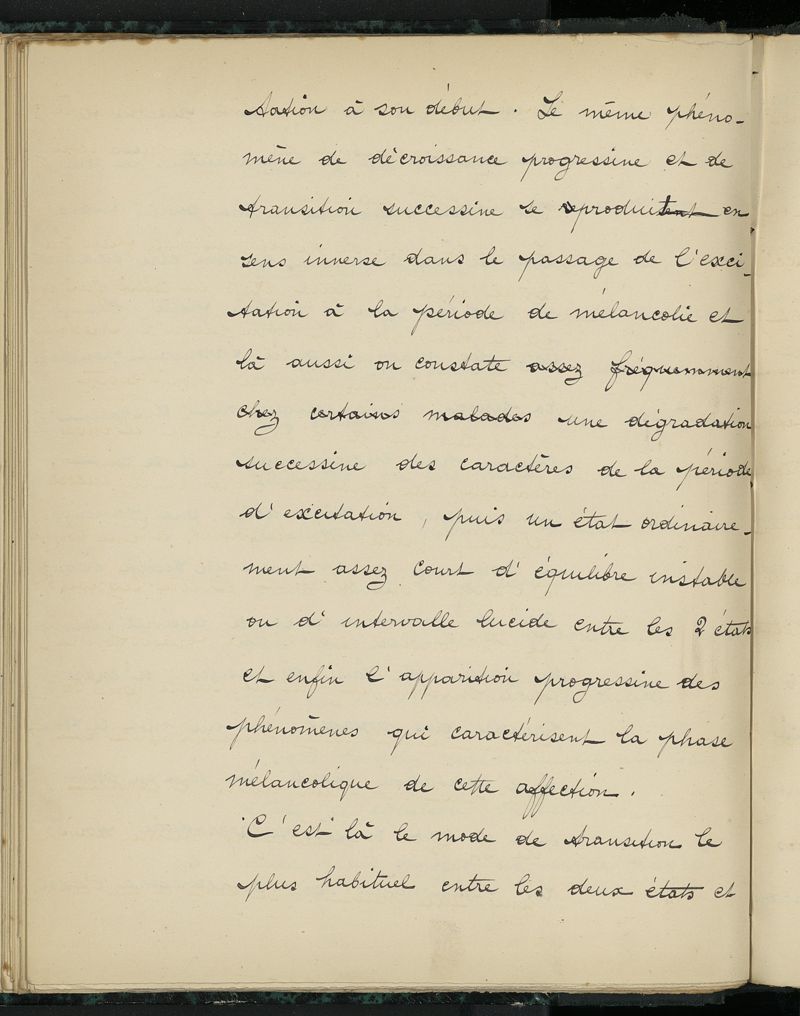 tation à son début. Le même phéno-
mène de décroissance progressive et de
transition successive se reproduitent en
sens inverse dans le passage de l'exci-
tation à la période de mélancolie et
là aussi on constate assez fréquemment
chez certains malades une dégradation
successive des caractères de la période
d'excitation, puis un état ordinaire-
ment assez court d'équilibre instable
ou d'intervalle lucide entre les 2 états
et enfin l'apparition progressive des
phénomènes qui caractérisent la phase
mélancolique de cette affection.
C'est là le mode de transition le
plus habituel entre les deux états et